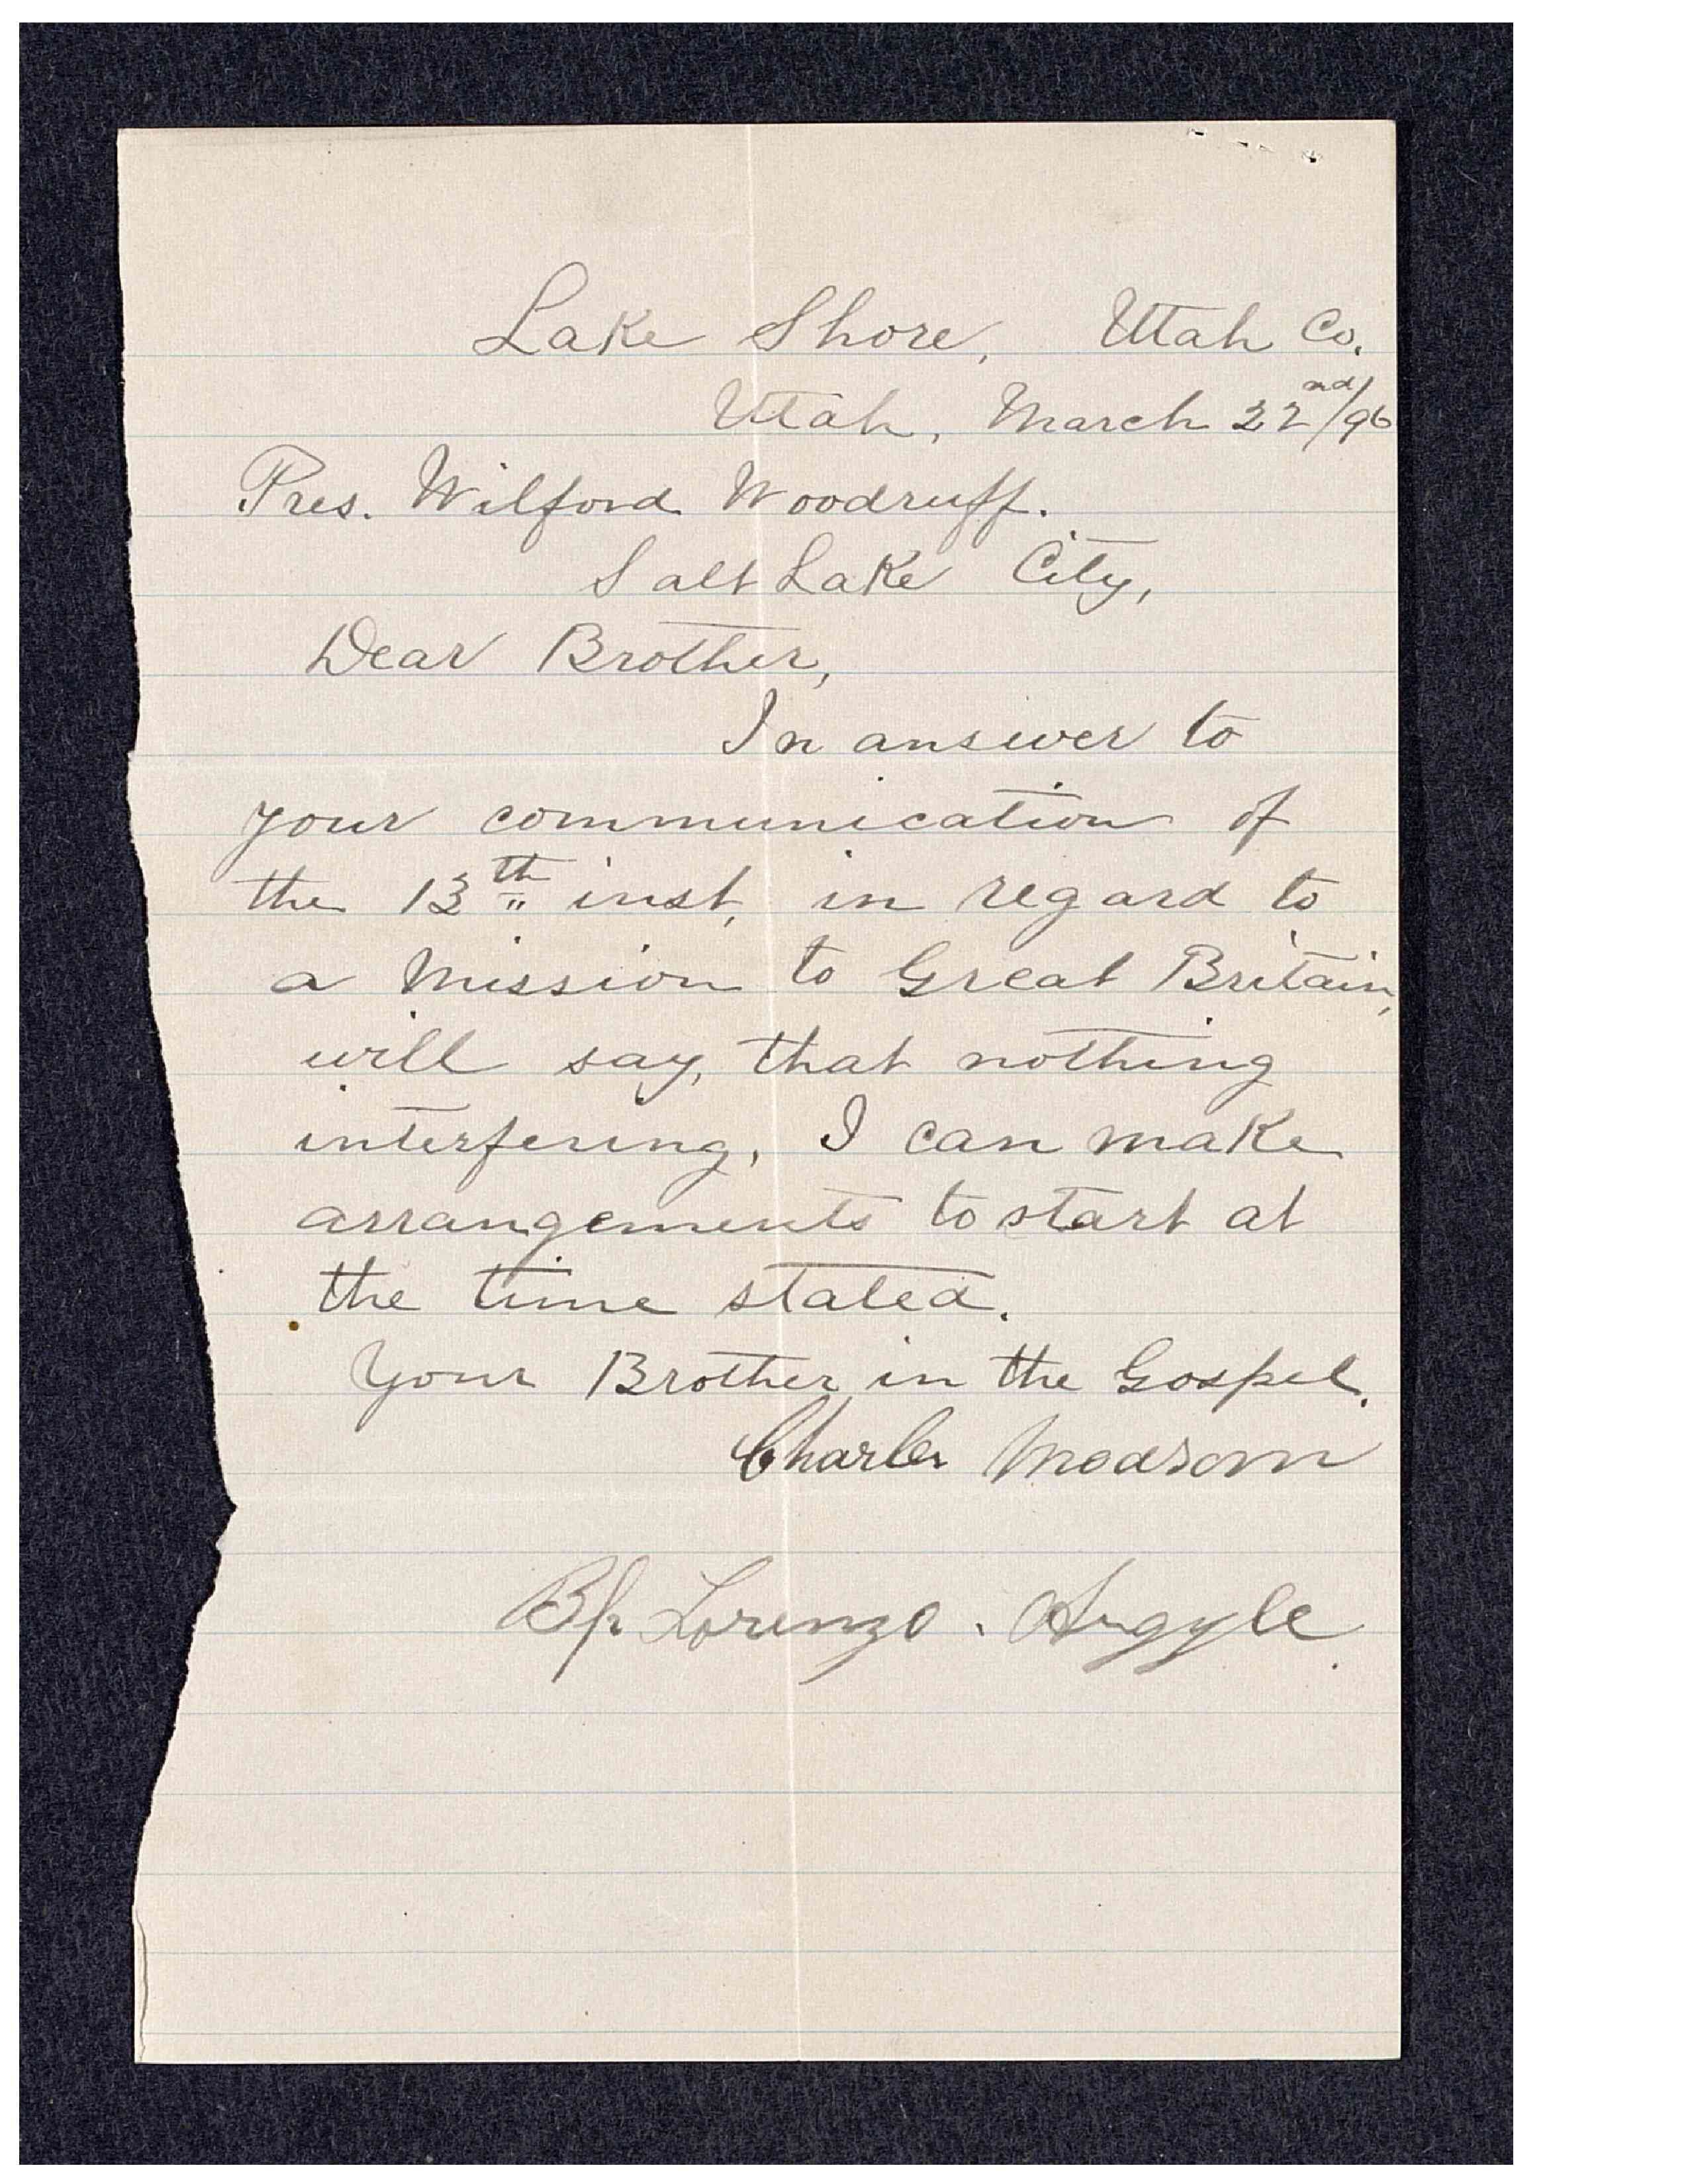 Lake Shore, Utah Co.
Utah, March 22nd/96
Pres. Wilford Woodruff.
Salt Lake City,
Dear Brother,
In answer to
your communication of
the 13th inst, in regard to
a Mission to Great Britain,
will say, that nothing
interfering, I can make
arrangements to start at
the time stated.
Your Brother in the Gospel.
Charles Madsen
Bp. Lorenzo Argyle